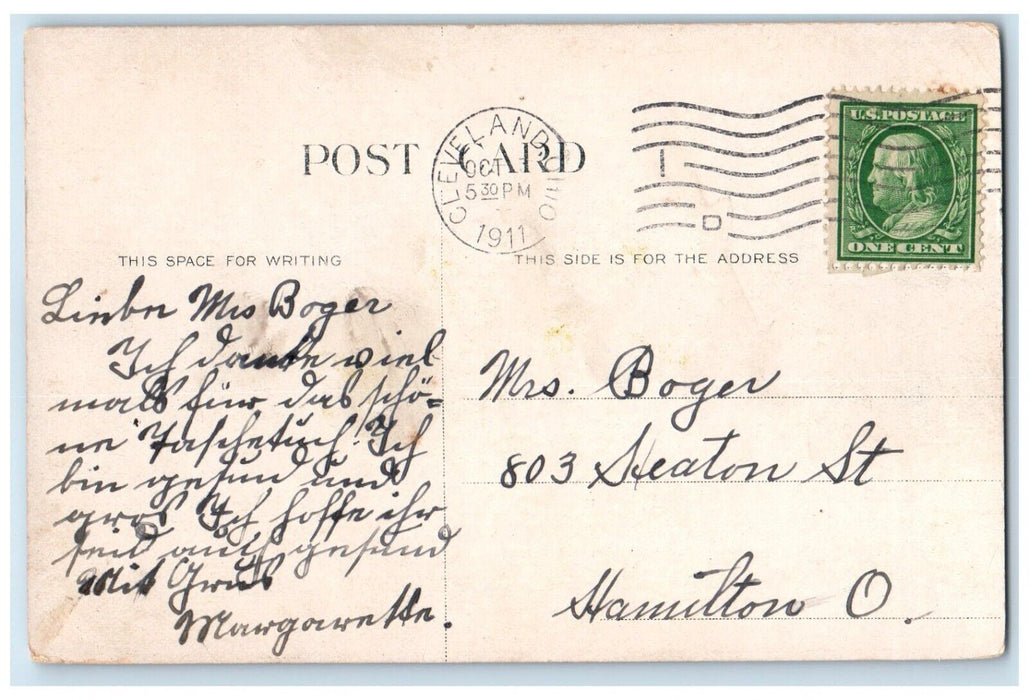 POST CARD
CLEVELAND, OHIO
OCT
5 30 PM
1911
D
U.S. POSTAGE
ONE CENT
THIS SPACE FOR WRITING
THIS SIDE IS FOR THE ADDRESS
Liebe Mrs Boger
Ich danke viel
mals für das schö=
ne Taschetuch! Ich
bin gesund und
gros Ich hoffe ihr
seid auch gesund
Mit Grus
Margarette.
Mrs. Boger
803 Heaton St
Hamilton O.